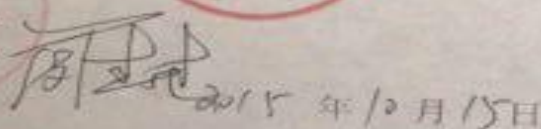 2015年10月15日